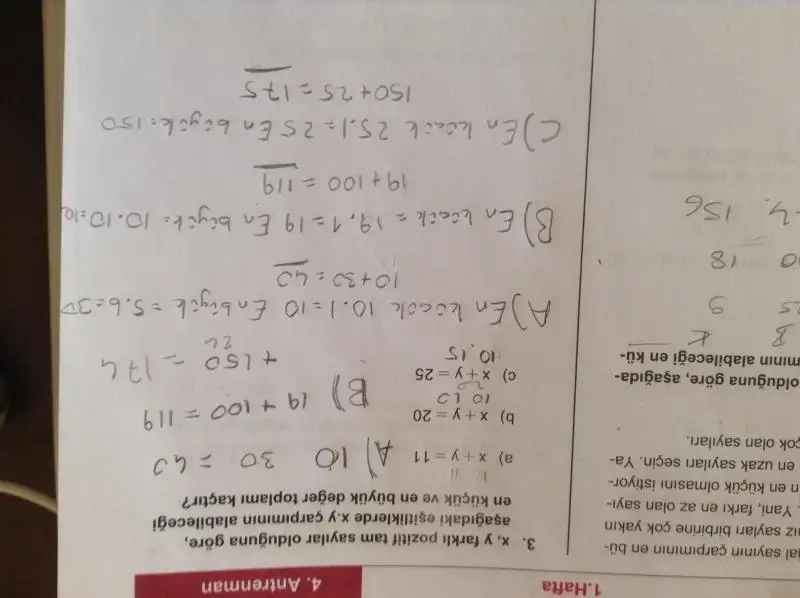 1.Hafta
4. Antrenman
al sayının çarpımının en bü-
ız sayıları birbirine çok yakın
. Yani, farkı en az olan sayı-
n en küçük olmasını istiyor-
en uzak sayıları seçin. Ya-
çok olan sayıları.
olduğuna göre, aşağıda-
mının alabileceği en kü-
B K
25 9
18
156
3. x, y farklı pozitif tam sayılar olduğuna göre,
aşağıdaki eşitliklerde x.y çarpımının alabileceği
en küçük ve en büyük değer toplamı kaçtır?
a) x + y = 11 A) 10 30 = 40
b) x + y = 20 B) 19 + 100 = 119
10 10
20
c) x + y = 25
10.15
+ 150 = 174
24
A) En küçük 10.1=10 En büyük = 5.6=30
10+30=40
B) En küçük = 19.1=19 En büyük = 10.10=10
19+100=119
C) En küçük 25.1=25 En büyük: 150
150+25=175